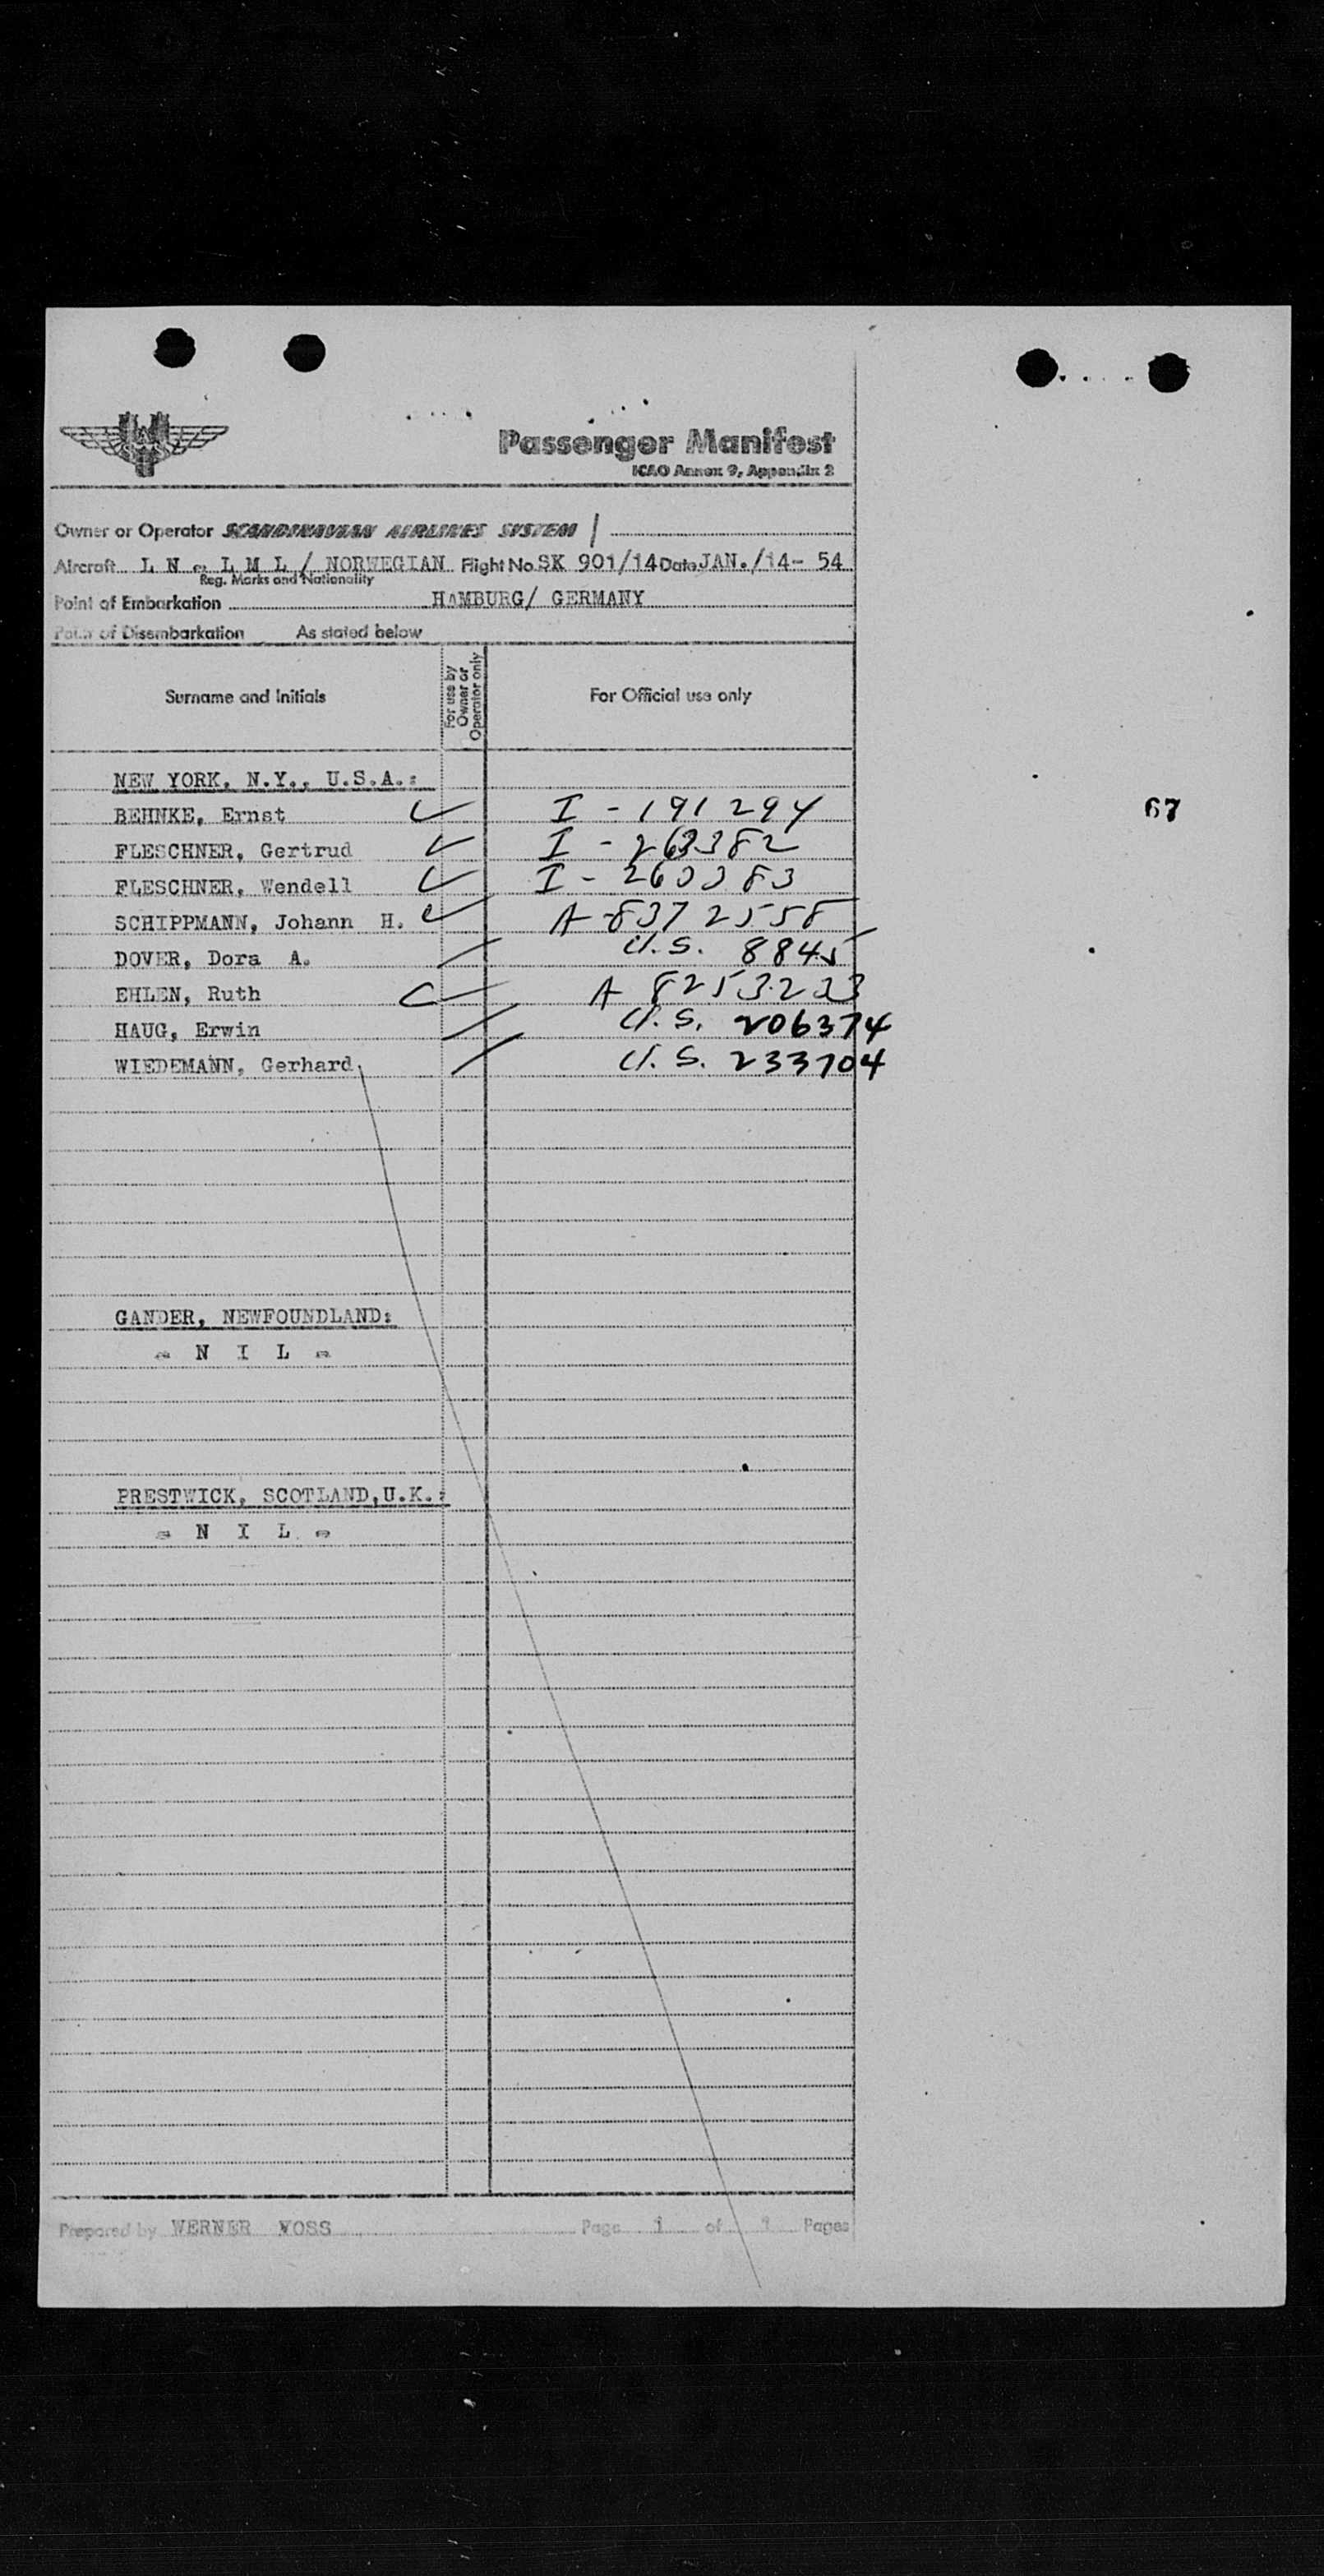 Passenger Manifest
ICAO Annex 9, Appendix 2
Owner or Operator SCANDINAVIAN AIRLINES SYSTEM /
Aircraft L N - L M L / NORWEGIAN Flight No. SK 901/14 Date JAN./14- 54
Reg. Marks and Nationality
Point of Embarkation HAMBURG/ GERMANY
Point of Disembarkation As stated below
Surname and Initials
For use by Owner or Operator only
For Official use only
NEW YORK, N.Y., U.S.A.:
BEHNKE, Ernst I - 191294
67
FLESCHNER, Gertrud I - 263382
FLESCHNER, Wendell I - 263383
SCHIPPMANN, Johann H. A-8372558
DOVER, Dora A. U.S. 8845
EHLEN, Ruth A 8253223
HAUG, Erwin U.S. 206374
WIEDEMANN, Gerhard U.S. 233704
GANDER, NEWFOUNDLAND:
- N I L -
PRESTWICK, SCOTLAND,U.K.:
- N I L -
Prepared by WERNER VOSS Page 1 of 1 Pages